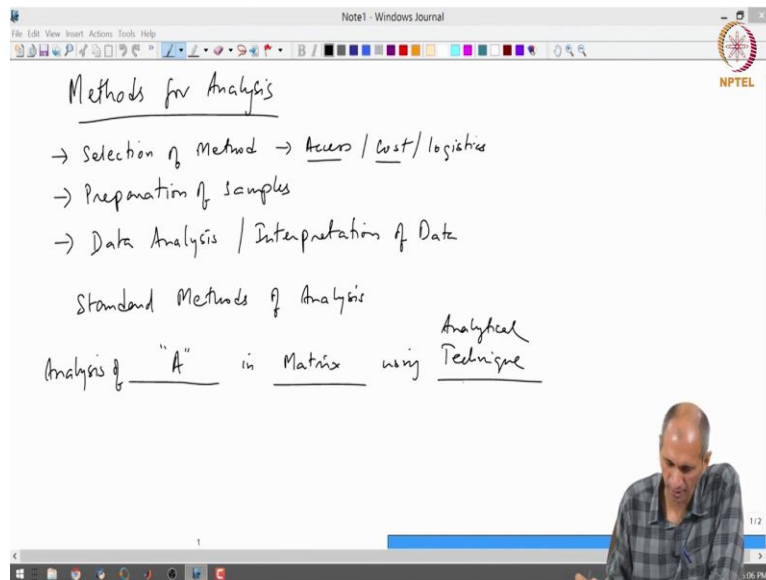 Note1 - Windows Journal
File Edit View Insert Actions Tools Help
NPTEL
Methods for Analysis
→ Selection of Method → Access / Cost / logistics
→ Preparation of Samples
→ Data Analysis / Interpretation of Data
Standard Methods of Analysis
Analysis of "A" in Matrix using Analytical Technique
1
1/2
5:06 PM